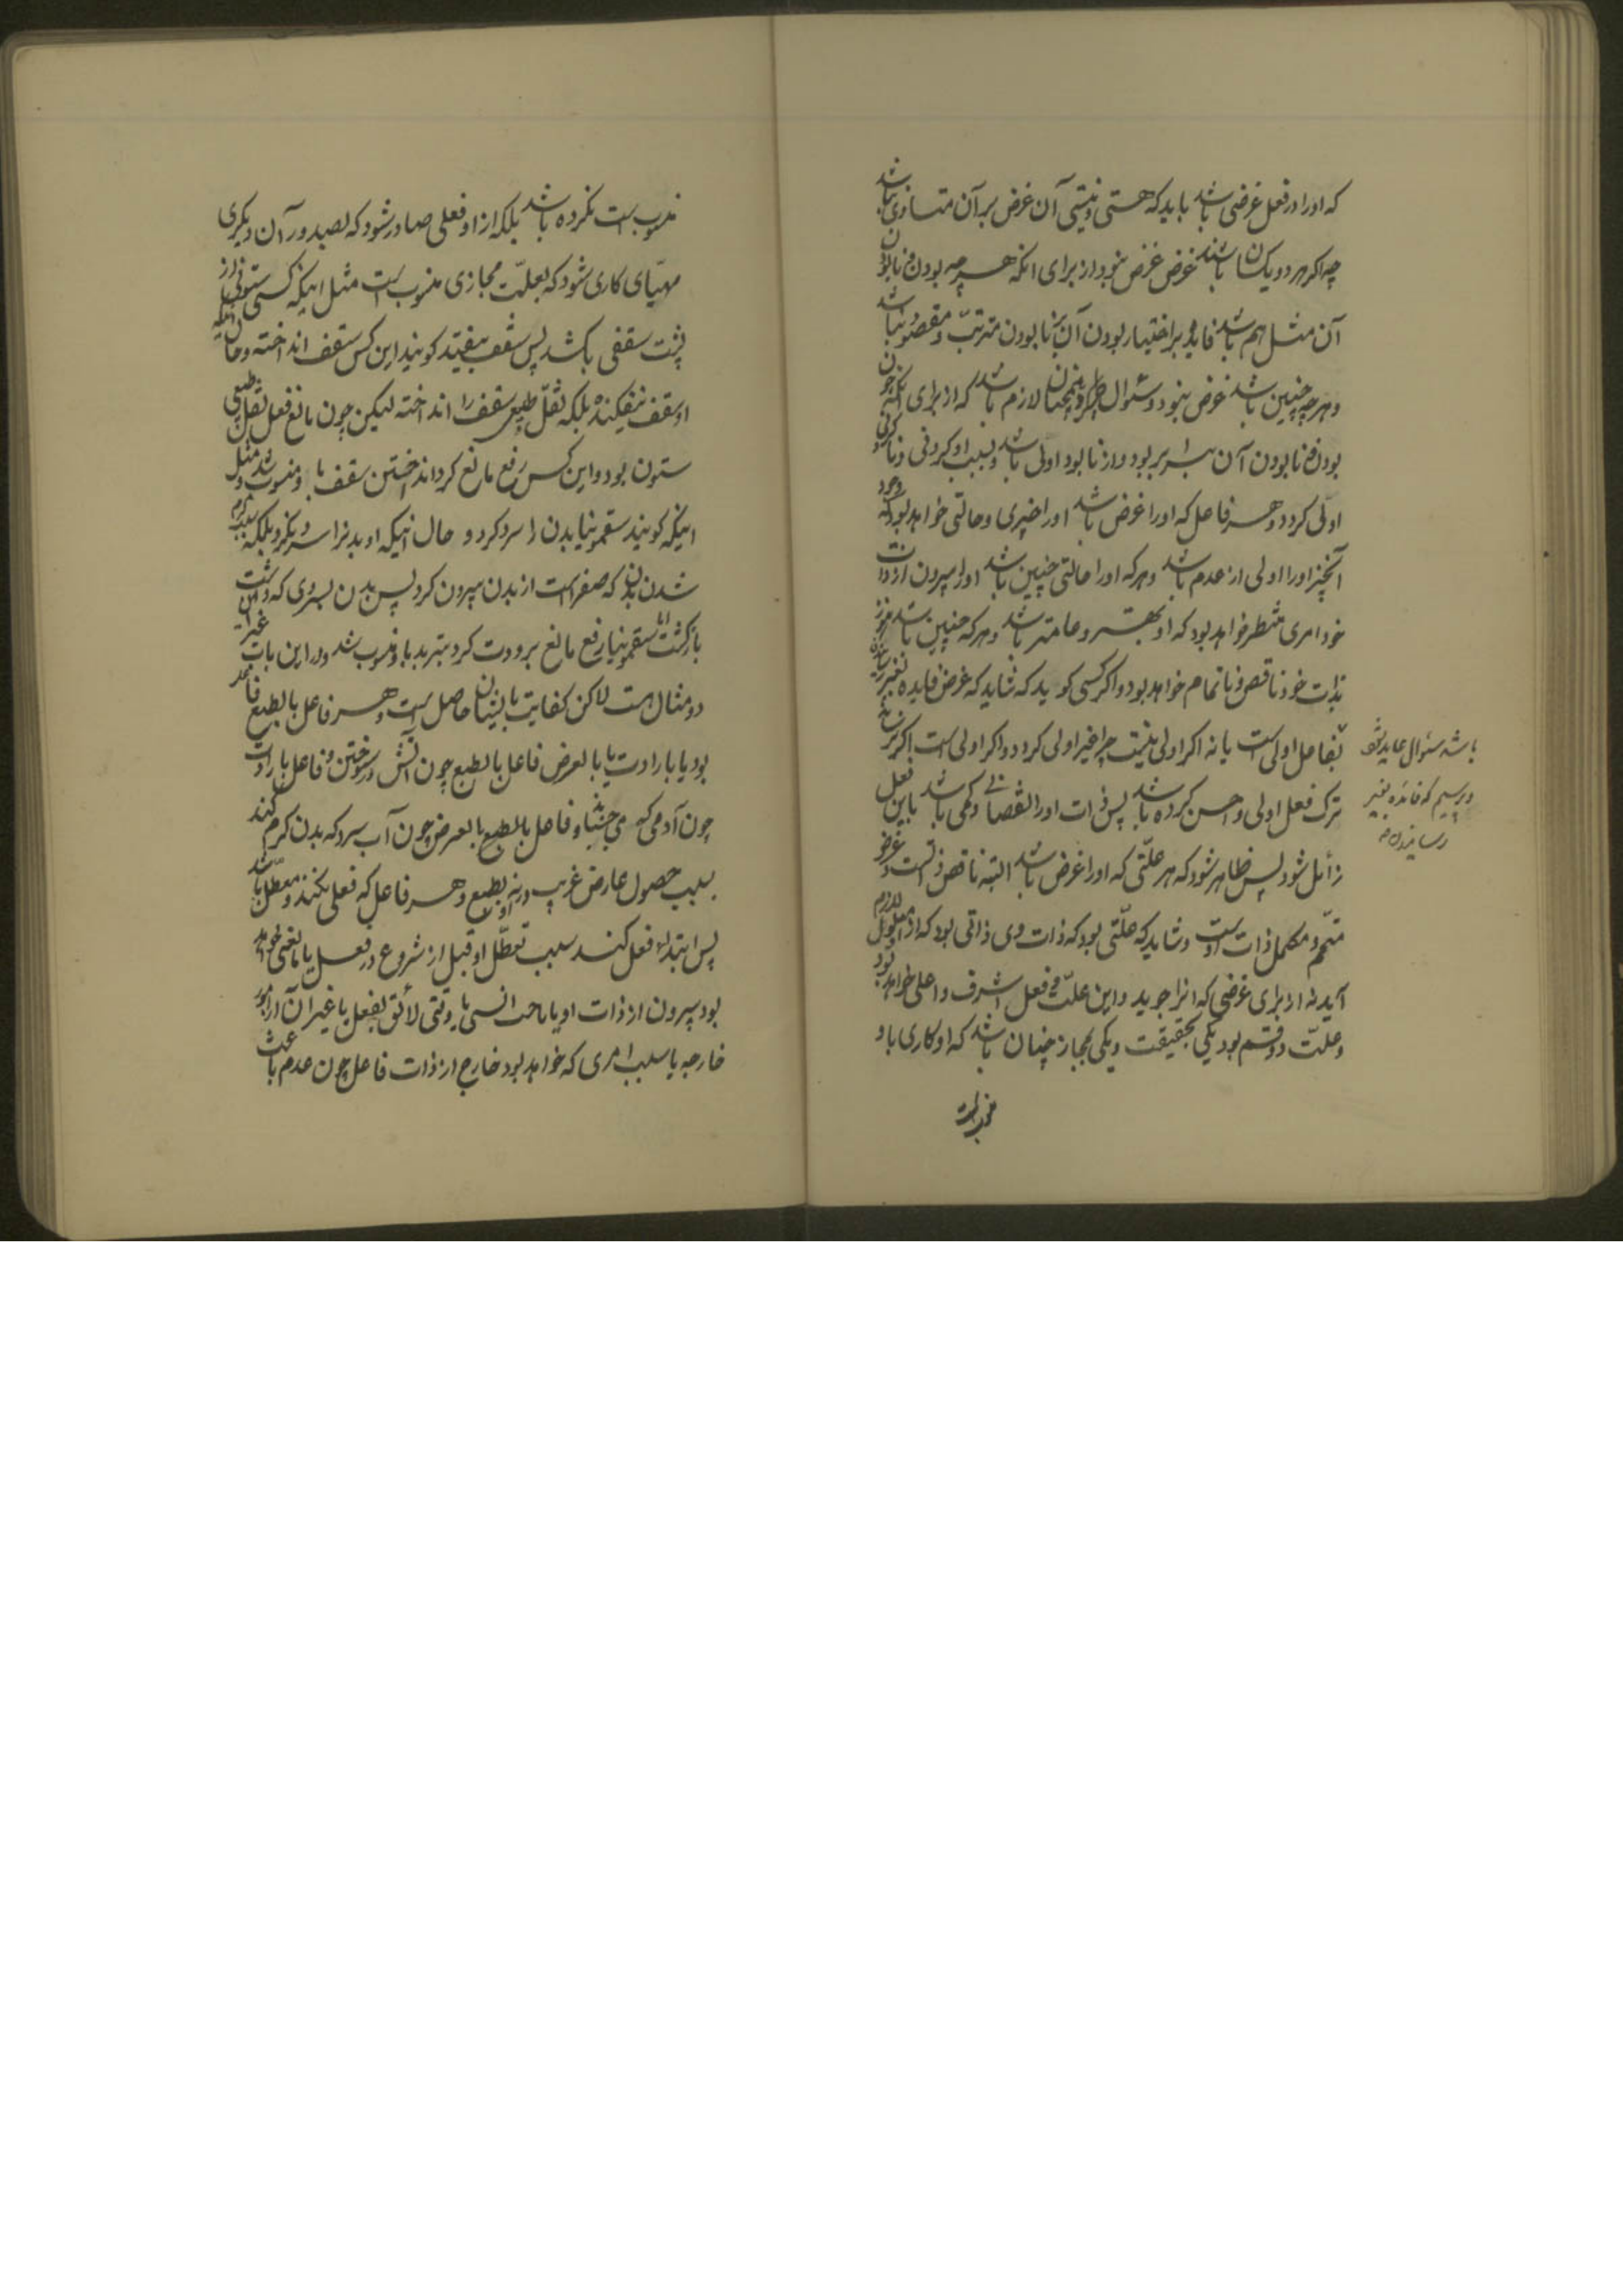 که او را در فعل غرضی باشد باید که هستی و نیستی آن غرض بر آن متساوی نباشد
چه اکر هر دو یکسان باشند غرض غرض نبود از برای انکه هر چه بودن و نابودن
آن مثل هم باشد فایده بر اختیار بودن آن بر نابودن مترتب و مقصود نباشد
و هر چه چنین باشد غرض نبود و سئوال همچنان لازم باشد که از برای انکه چون
بودن و نابودن آن برابر بود و از نابود اولی باشد و بسبب او کردنی و ناکردنی
اولی کردد و هر فاعل که او را غرض باشد او را خیری و حالتی خواهد بود که وجود
آنچیز او را اولی از عدم باشد و هر که او را حالتی چنین باشد او را بیرون از ذات
خود امری منتظر خواهد بود که او بهتر و تمامتر باشد و هر که چنین باشد هنوز
بذات خود ناقص و ناتمام خواهد بود و اکر کسی کوید که شاید که غرض فایده بغیر رسانیدن
باشد سئوال عاید شود
و پرسیم که فائده بغیر
رسانیدن
بفاعل اولی است یا نه اکر اولی نیست چرا خیر اولی کردد و اکر اولی است اکر
ترک فعل اولی و احسن کرده باشد پس ذات او را نقصانی و کمی باشد باین فعل
زائل شود پس ظاهر شود که هر علتی که او را غرض باشد البته ناقص ذاتست و غرض
متمم و مکمل ذات اوست و شاید که علتی بود که ذات وی ذاتی بود که از او معلول لازم
آید نه از برای غرضی که انرا جوید و این علت در فعل اشرف و اعلی خواهد بود
و علت دو قسم بود یکی بحقیقت و یکی بمجاز چنان باشد که او کاری باو
منسوبست
منسوبست نکرده باشد بلکه از او فعلی صادر شود که بصدور آن دیکری
مهیای کاری شود که بعلت مجازی منسوب است مثل اینکه کسی ستونی از
پشت سقفی بکشد پس سقف بیفتد کویند این کس سقف انداخته و حال آنکه
او سقف نیفکنده بلکه ثقل طبیعی سقف را انداخته لیکن چون مانع فعل ثقل طبیعی
ستون بود و این کس رفع مانع کرد انداختن سقف باو منسوب شد و مثل
اینکه کویند سقمونیا بدن را سرد کرد و حال اینکه او بدنرا سرد نکرد بلکه سبب کرم
شدن بدن که صفراست از بدن بیرون کرد پس بدن بسردی که داشت
بازکشت اما سقمونیا رفع مانع برودت کرد تبرید باو منسوب شد و در این باب غیر این
دو مثال هست لاکن کفایت باینان حاصل است و هر فاعل بالطبع فاعل
بود یا بارادت یا بالعرض فاعل بالطبع چون آتش در سوختن و فاعل بارادت
چون آدمی که می جنبد و فاعل بالطبع بالعرض چون آب سرد که بدن کرم کند
بسبب حصول عارض غریب و نه بطبع او و هر فاعل که فعلی نکند و معطل باشد
پس ابتداء فعل کند سبب تعطل او قبل از شروع در فعل یا مانعی خواهد
بود بیرون از ذات او یا وقتی لائق بفعل یا غیر آن از امور
خارجه یا بسبب امری که خواهد بود خارج از ذات فاعل چون عدم باعث